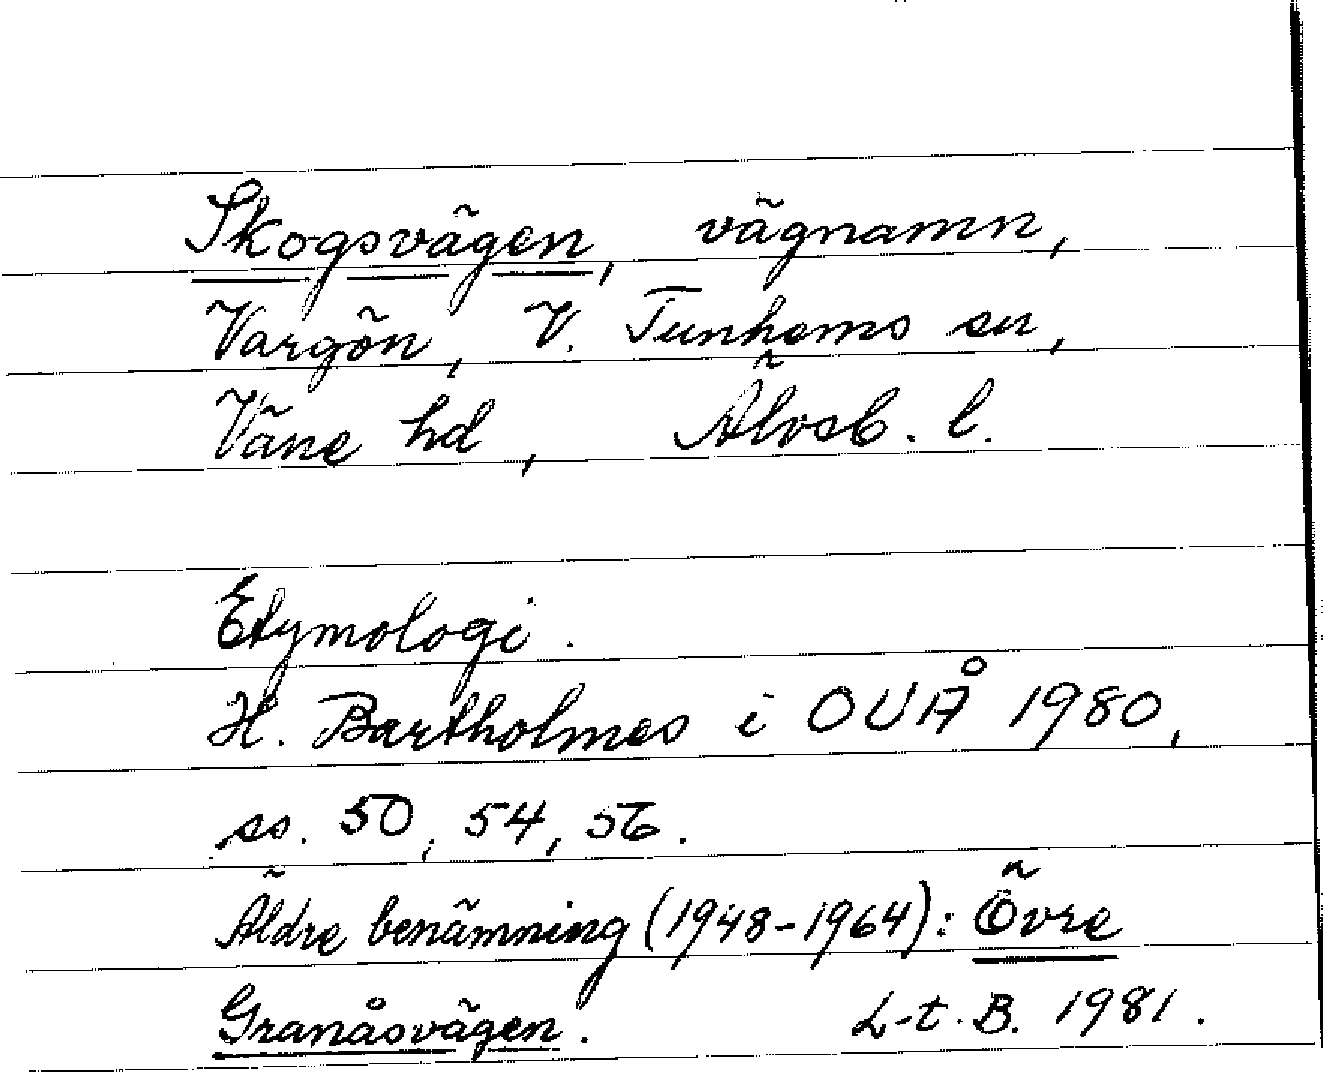 Skogsvägen, vägnamn,
Vargön, V. Tunhems sn,
Väne hd, Älvsb. l.
Etymologi.
H. Bartholmes i OUÅ 1980,
ss. 50, 54, 56.
Äldre benämning (1948-1964): Övre
Granåsvägen. L-t. B. 1981.